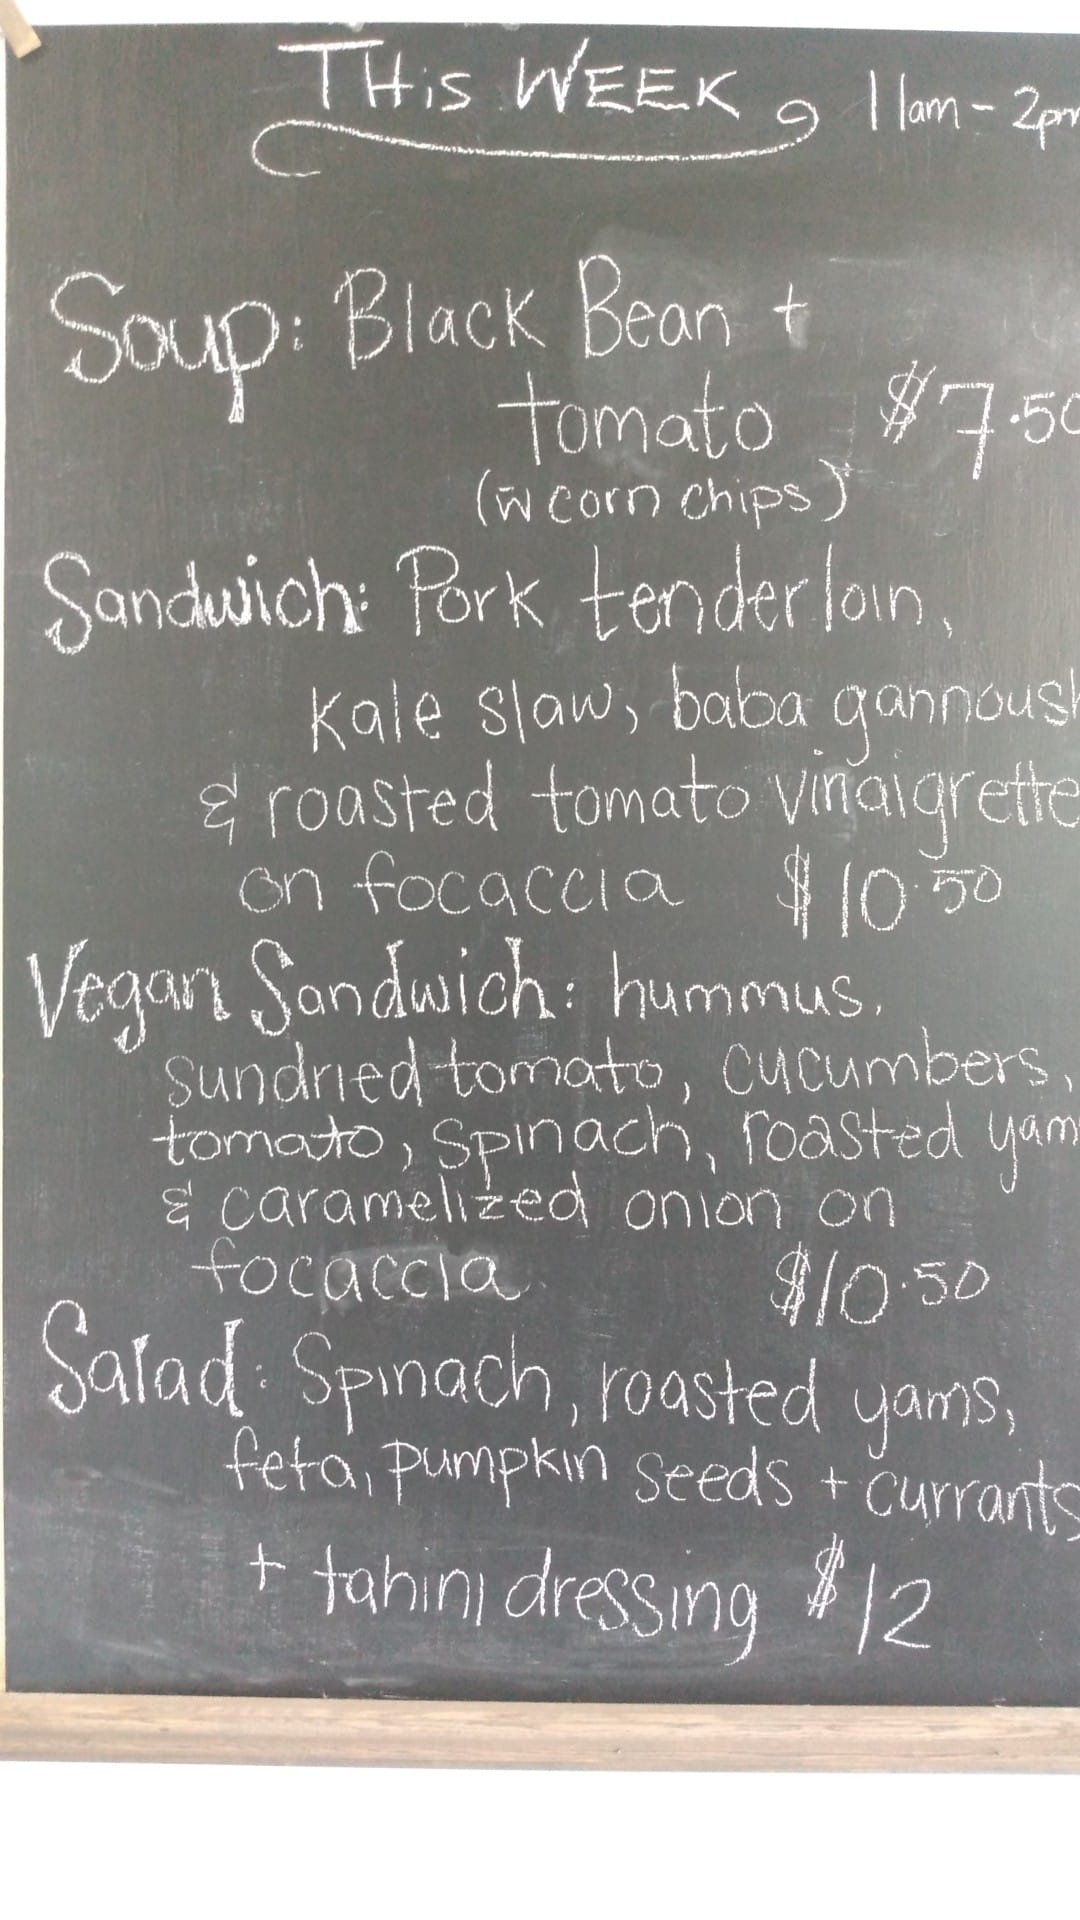 THis WEEK 11am - 2pm
Soup: Black Bean +
tomato $7.50
(w̄ corn chips)
Sandwich: Pork tenderloin,
kale slaw, baba gannoush
& roasted tomato vinaigrette
on focaccia $10.50
Vegan Sandwich: hummus,
sundried tomato, cucumbers,
tomato, spinach, roasted yam
& caramelized onion on
focaccia $10.50
Salad: Spinach, roasted yams,
feta, pumpkin seeds + currants
+ tahini dressing $12